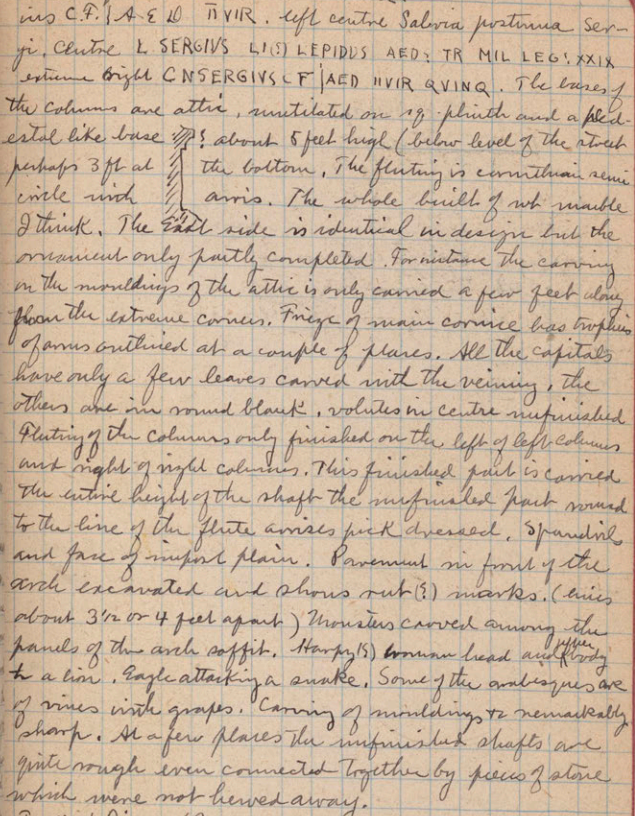 ius C.F.| A E D IIVIR. left centre Salvia postuma Ser-
gi, Centre L SERGIUS L.I(?) LEPIDUS AED: TR MIL LEG: XXIX
extreme right CNSERGIVS C F |AED IIVIR QVINQ. The bases of
the columns are attic, mutilated on sq. plinth and a ped-
estal like base ? about 5 feet high (below level of the street
perhaps 3 ft at the bottom. The fluting is corinthian semi
circle with arris. The whole built of wh marble
I think. The East side is identical in design but the
ornament only partly completed. For instance the carving
on the mouldings of the attic is only carried a few feet along
from the extreme corners. Frieze of main cornice has trophies
of arms outlined at a couple of places. All the capitals
have only a few leaves carved with the veining, the
others are in round blank, volutes in centre unfinished
Fluting of the columns only finished on the left of left columns
and right of right columns. This finished part is carried
the entire height of the shaft the unfinished part round
to the line of the flute arrises pick dressed. Spandrils
and face of impost plain. Pavement in front of the
arch excavated and shows rut(?) marks. (lines
about 3 1/2 or 4 feet apart) Monsters carved among the
panels of the arch soffit. Harpy(?) woman head and upper body
to a lion. Eagle attacking a snake. Some of the arabesques are
of vines with grapes. Carving of mouldings &c remarkably
sharp. At a few places the unfinished shafts are
quite rough even connected together by pieces of stone
which were not hewed away.